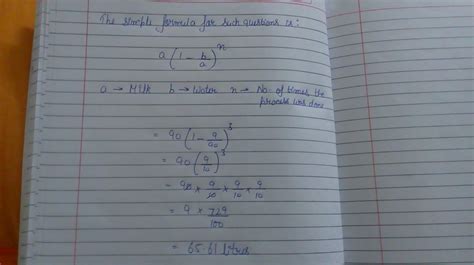 The simple formula for such questions is:
a (1 - b/a)^n
a → Milk b → Water n → No. of times the
process was done
= 90 (1 - 9/90)^3
= 90 (9/10)^3
= 90 × 9/10 × 9/10 × 9/10
= 9 × 729/100
= 65.61 litres